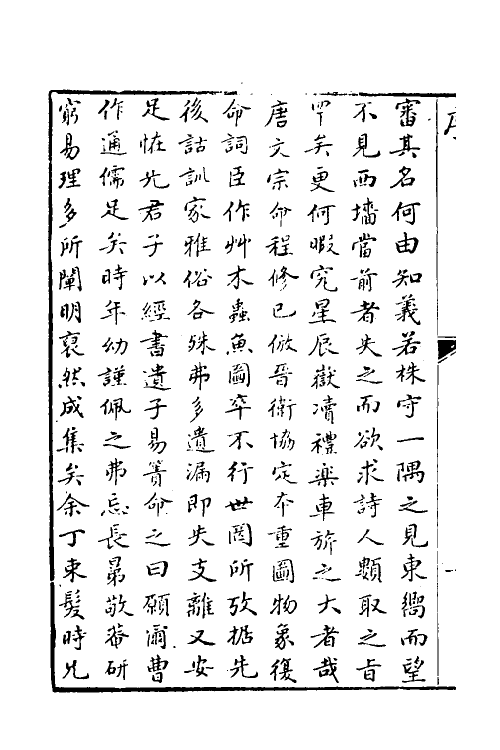 審其名何由知義若株守一隅之見東嚮而望
不見西墻當前者失之而欲求詩人類取之旨
罕矣更何暇究星辰嶽瀆禮樂車旂之大者哉
唐文宗命程修已倣晉衛協定本重圖物象復
命詞臣作艸木蟲魚圖卒不行世罔所攷據先
後詁訓家雅俗各殊弗多遺漏即失支離又安
足恠先君子以經書遺子易簀命之曰願爾曹
作通儒足矣時年幼謹佩之弗忘長第敬菴研
窮易理多所闡明裒然成集矣余丁束髮時凡